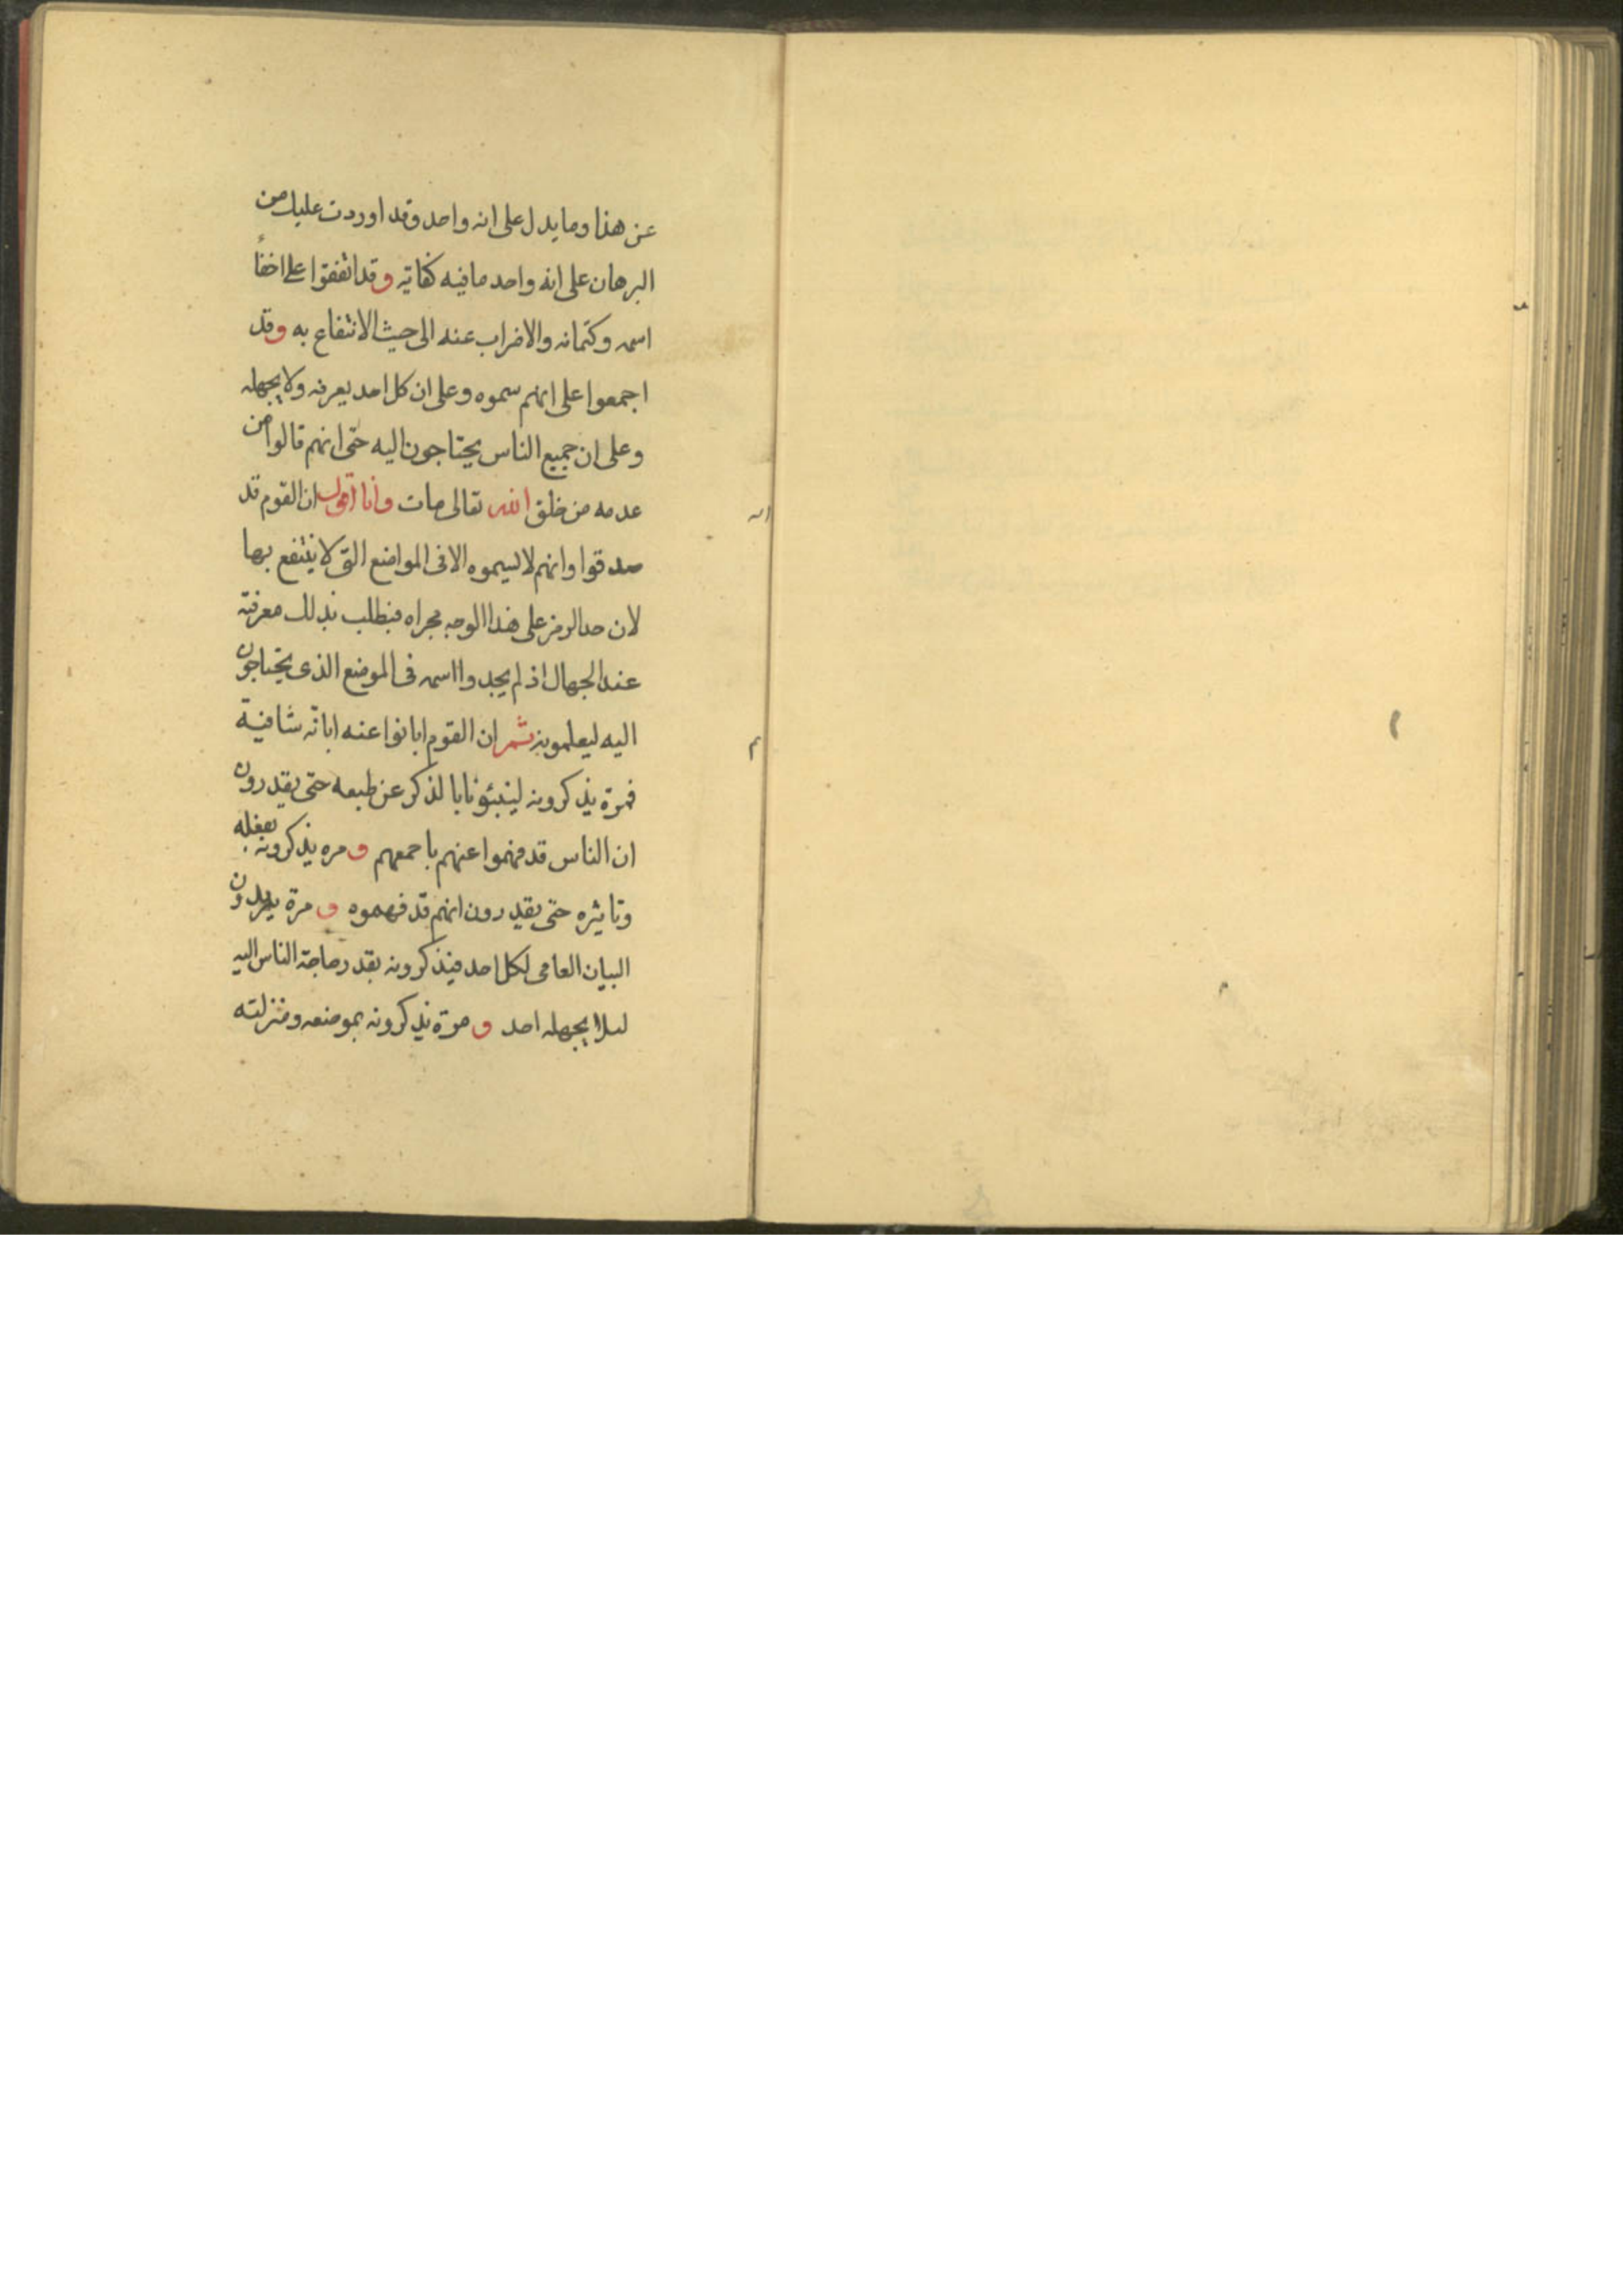 عن هذا وما يدل على انه واحد وقد اوردت عليك من
البرهان على انه واحد ما فيه كفاية وقد اتفقوا على اخفاء
اسمه وكتمانه والاضراب عنه الى حيث الانتفاع به وقد
اجمعوا على انهم سموه وعلى ان كل احد يعرفه ولا يجهله
وعلى ان جميع الناس يحتاجون اليه حتى انهم قالوا من
عدمه من خلق الله تعالى مات وانا اقول ان القوم قد
صدقوا وانهم لا يسموه الا فى المواضع التى لا ينتفع بها
لان حد الرمز على هذا الوجه مجراه فبطلب بذلك معرفته
عند الجهال اذ لم يجدوا اسمه فى الموضع الذى يحتاجون
اليه ليعلمونه ثم ان القوم ابانوا عنه ابانة شافية
فمرة يذكرونه لينبئونا بالذكر عن طبعه حتى يقدرون
ان الناس قد فهموا عنهم باجمعهم ومره يذكرونه بفعله
وتاثيره حتى يقدرون انهم قد فهموه و مرة يريدون
البيان العامى لكل احد فيذكرونه بقدر حاجة الناس اليه
لىلا يجهله احد و مرة يذكرونه بموضعه ومنزلته